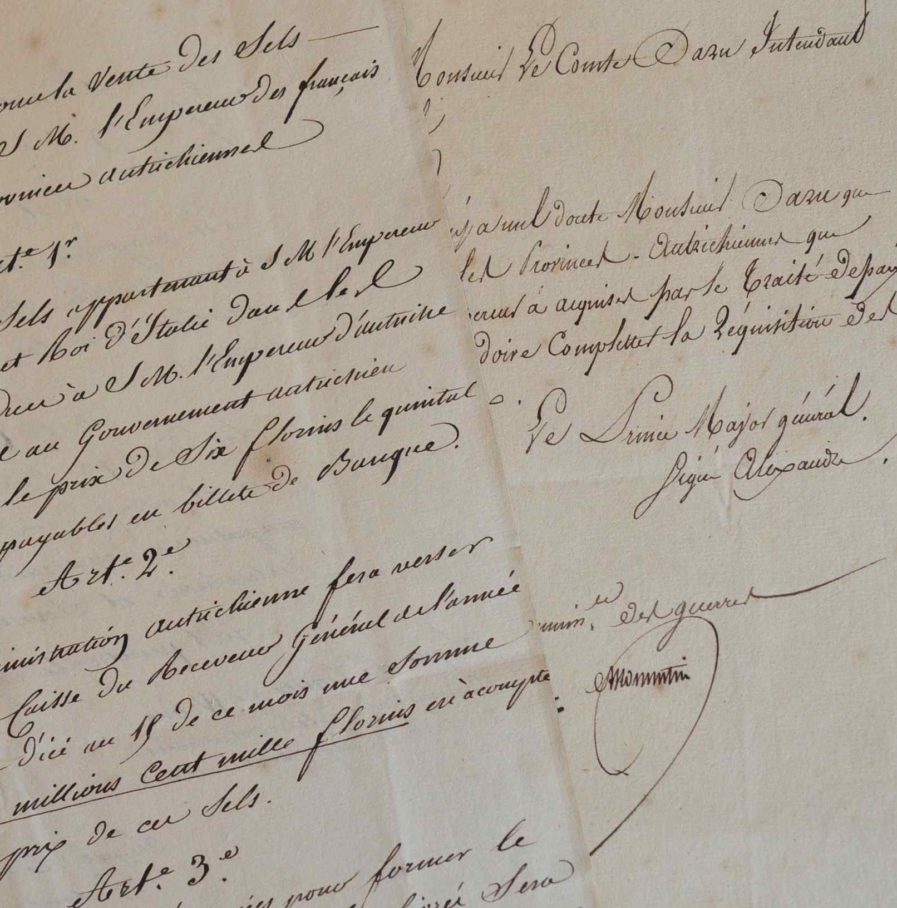 pour la Vente des Sels
S. M. l'Empereur des français
provinces autrichiennes
Art.e 1.r
Sels appartenant à S M l'Empereur
et Roi d'Italie dans les
à S. M. l'Empereur d'autriche
au Gouvernement autrichien
le prix de Six florins le quintal
payables en billets de Banque.
Art.e 2.e
autrichienne fera verser
Caisse du Receveur Général de l'année
d'ici au 15 de ce mois une Somme
millions Cent mille florins en àcompte
prix de ces Sels.
Art.e 3.e
pour former le
Sera
Monsieur Le Comte Daru Intendant
nul doute Monsieur Daru que
les Provinces Autrichiennes que
à acquises par le Traité de paix
doive Completter la Réquisition des
Le Prince Major général.
Signé Alexandre.
des guerres